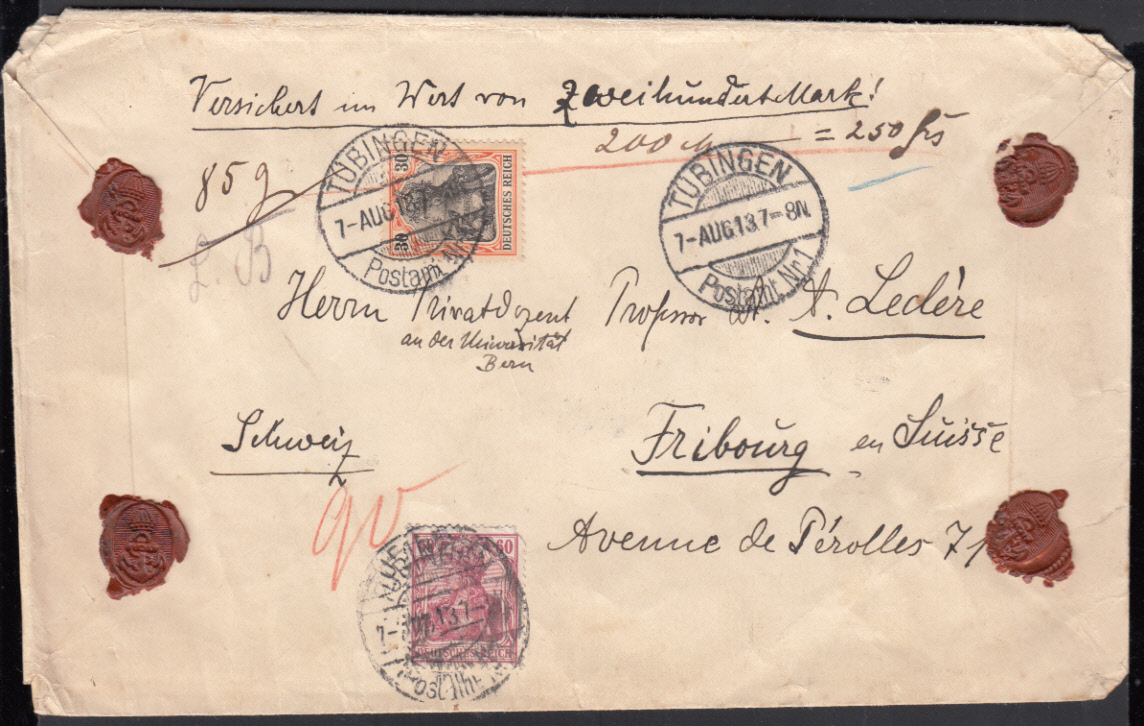 Versichert im Wert von Zweihundert Mark!
200 M = 250 frs
85 g
L. B
TÜBINGEN
7-AUG.13.7
Postamt Nr
30
30
DEUTSCHES REICH
TÜBINGEN
7-AUG.13.7-8N.
Postamt Nr.1
Herrn Privatdozent Professor Dr. A. Leclère
an der Universität
Bern
Schweiz
Fribourg en Suisse
Avenue de Pérolles 71
90
60
DEUTSCHES REICH